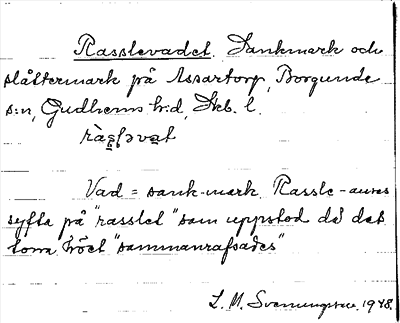 Rasslevadet. Sankmark och
slåttermark på Assartorp, Borgunda
s:n, Gudhems h:d, Skb. l.
Vad = sank-mark. Rassle- anses
syfta på "rasslet" som uppstod då det
torra höet "sammanrafsades"
L. M. Svenungsson. 1948.